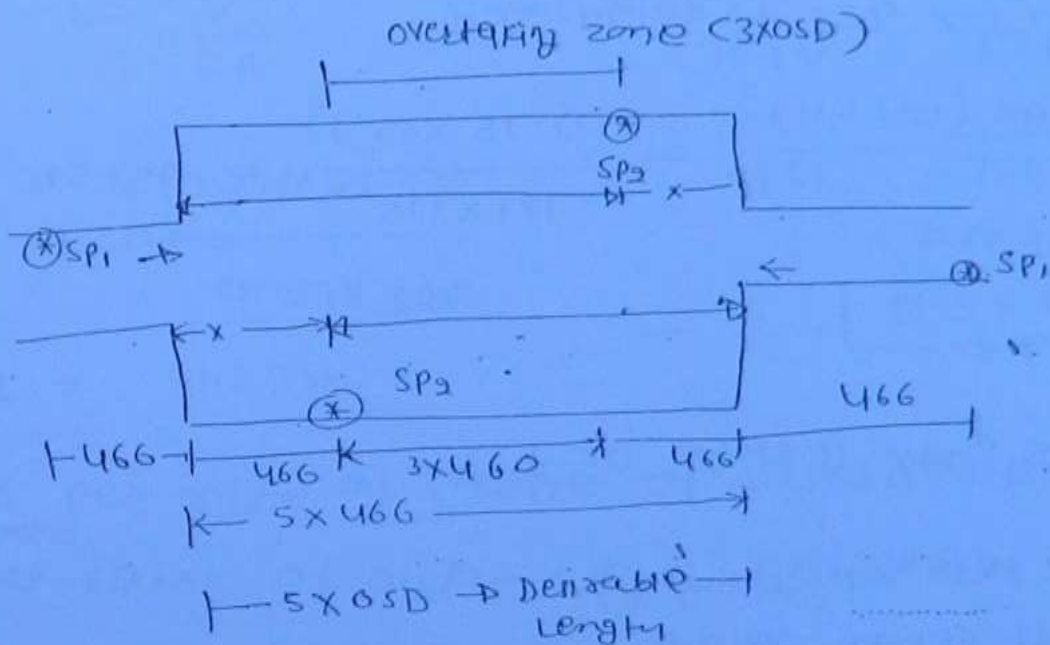 overtaking zone (3XOSD)
SP2
SP1
SP1
x
x
SP2
466
466
466
3X460
466
5X466
5XOSD → Desirable
Length